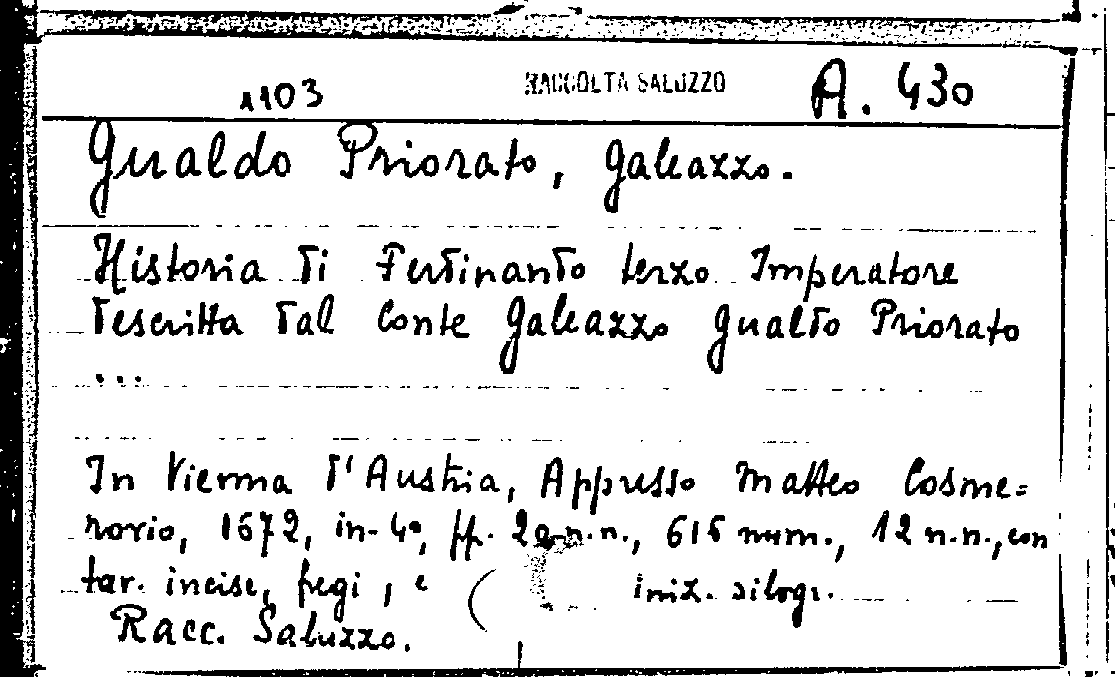 1103 RACCOLTA SALUZZO A. 430
Gualdo Priorato, Galeazzo.
Historia di Ferdinando terzo Imperatore
descritta dal Conte Galeazzo Gualdo Priorato
...
In Vienna d'Austria, Appresso Matteo Cosme=
rovio, 1672, in-4º, pp. 20 n.n., 616 num., 12 n.n., con
tav. incise, fregi, e iniz. silogr.
Racc. Saluzzo.